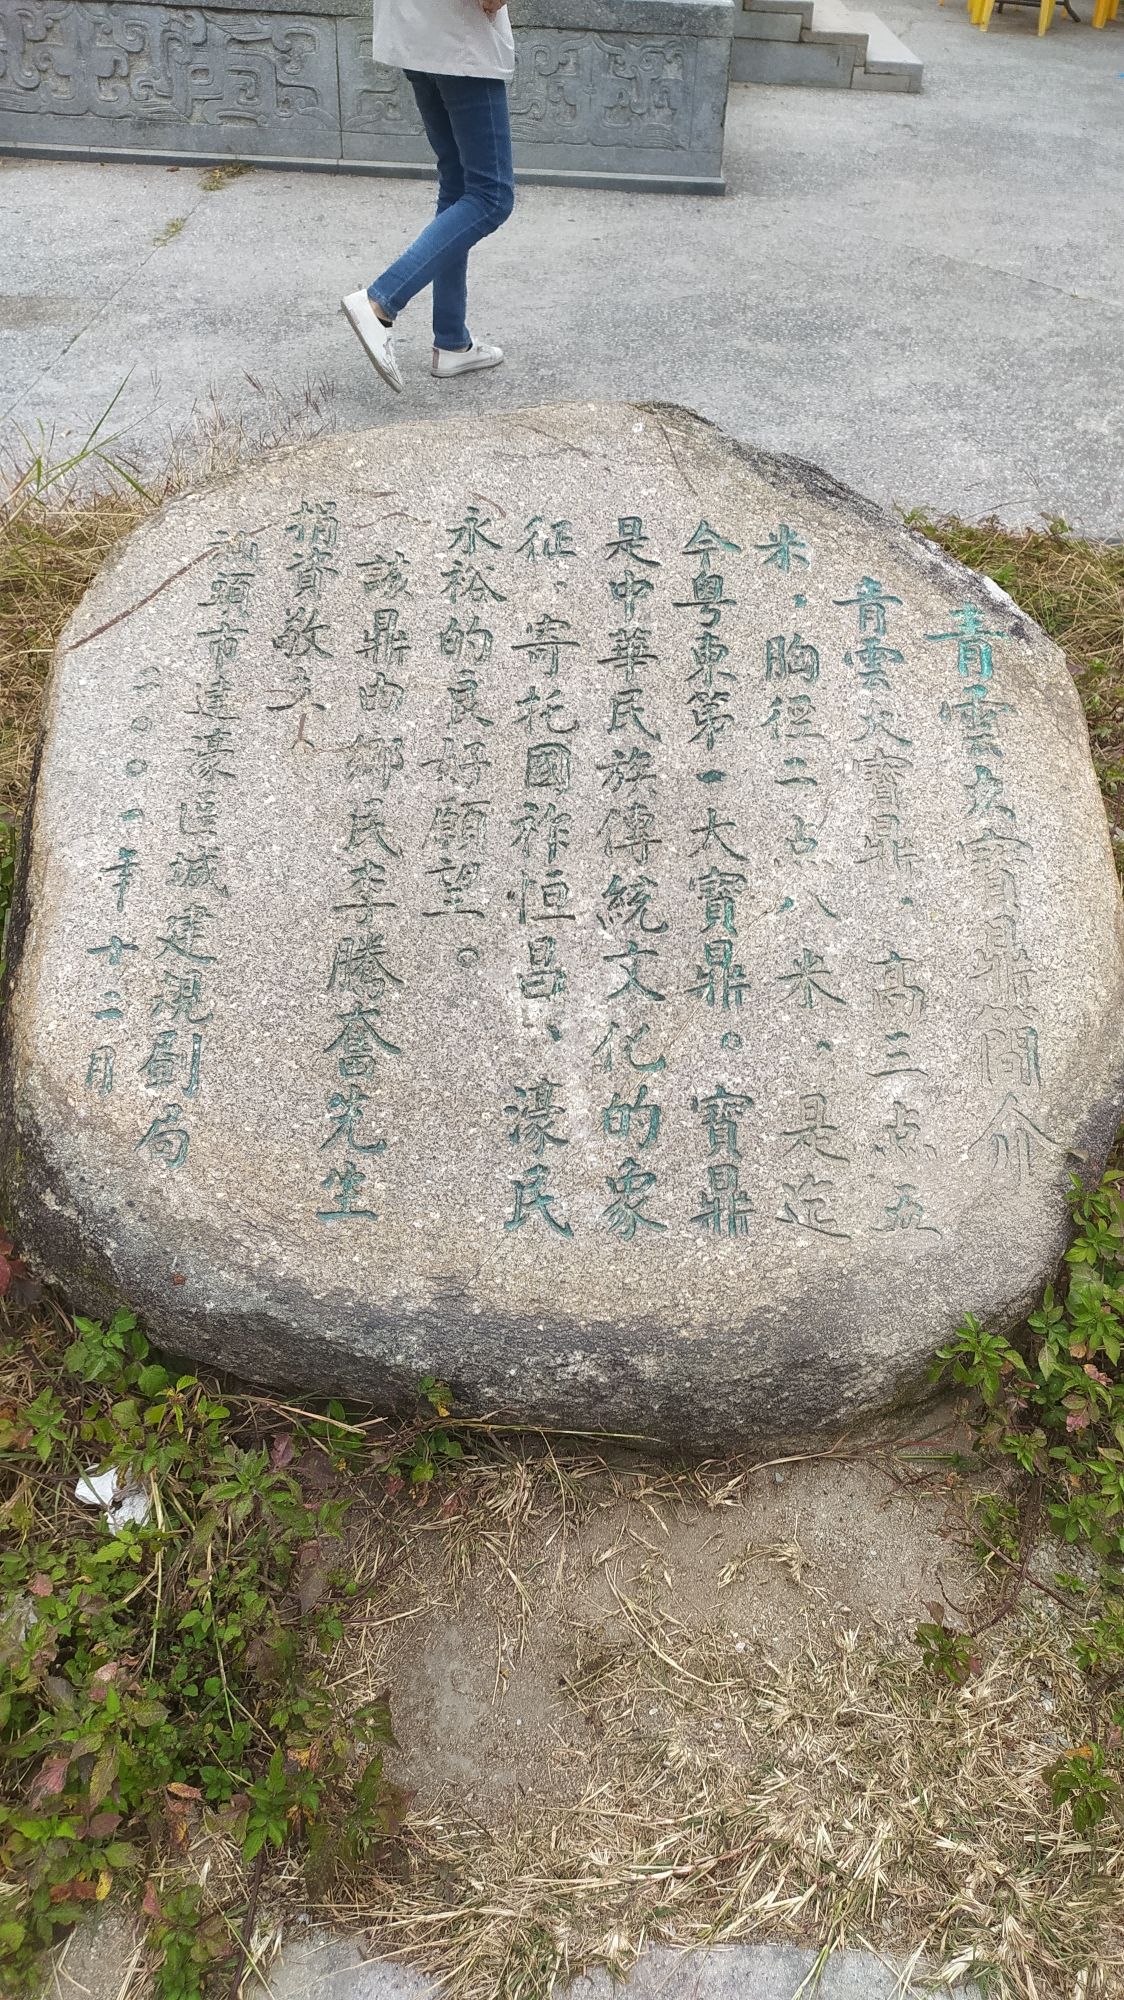 青雲大寶鼎簡介
青雲大寶鼎，高三点五
米，胸径二点八米，是迄
今粤東第一大寶鼎。寶鼎
是中華民族傳統文化的象
征，寄托國祚恒昌、濠民
永裕的良好願望。
該鼎由鄉民李騰奮先生
捐資敬立
汕頭市達濠區城建規劃局
二〇〇一年十二月